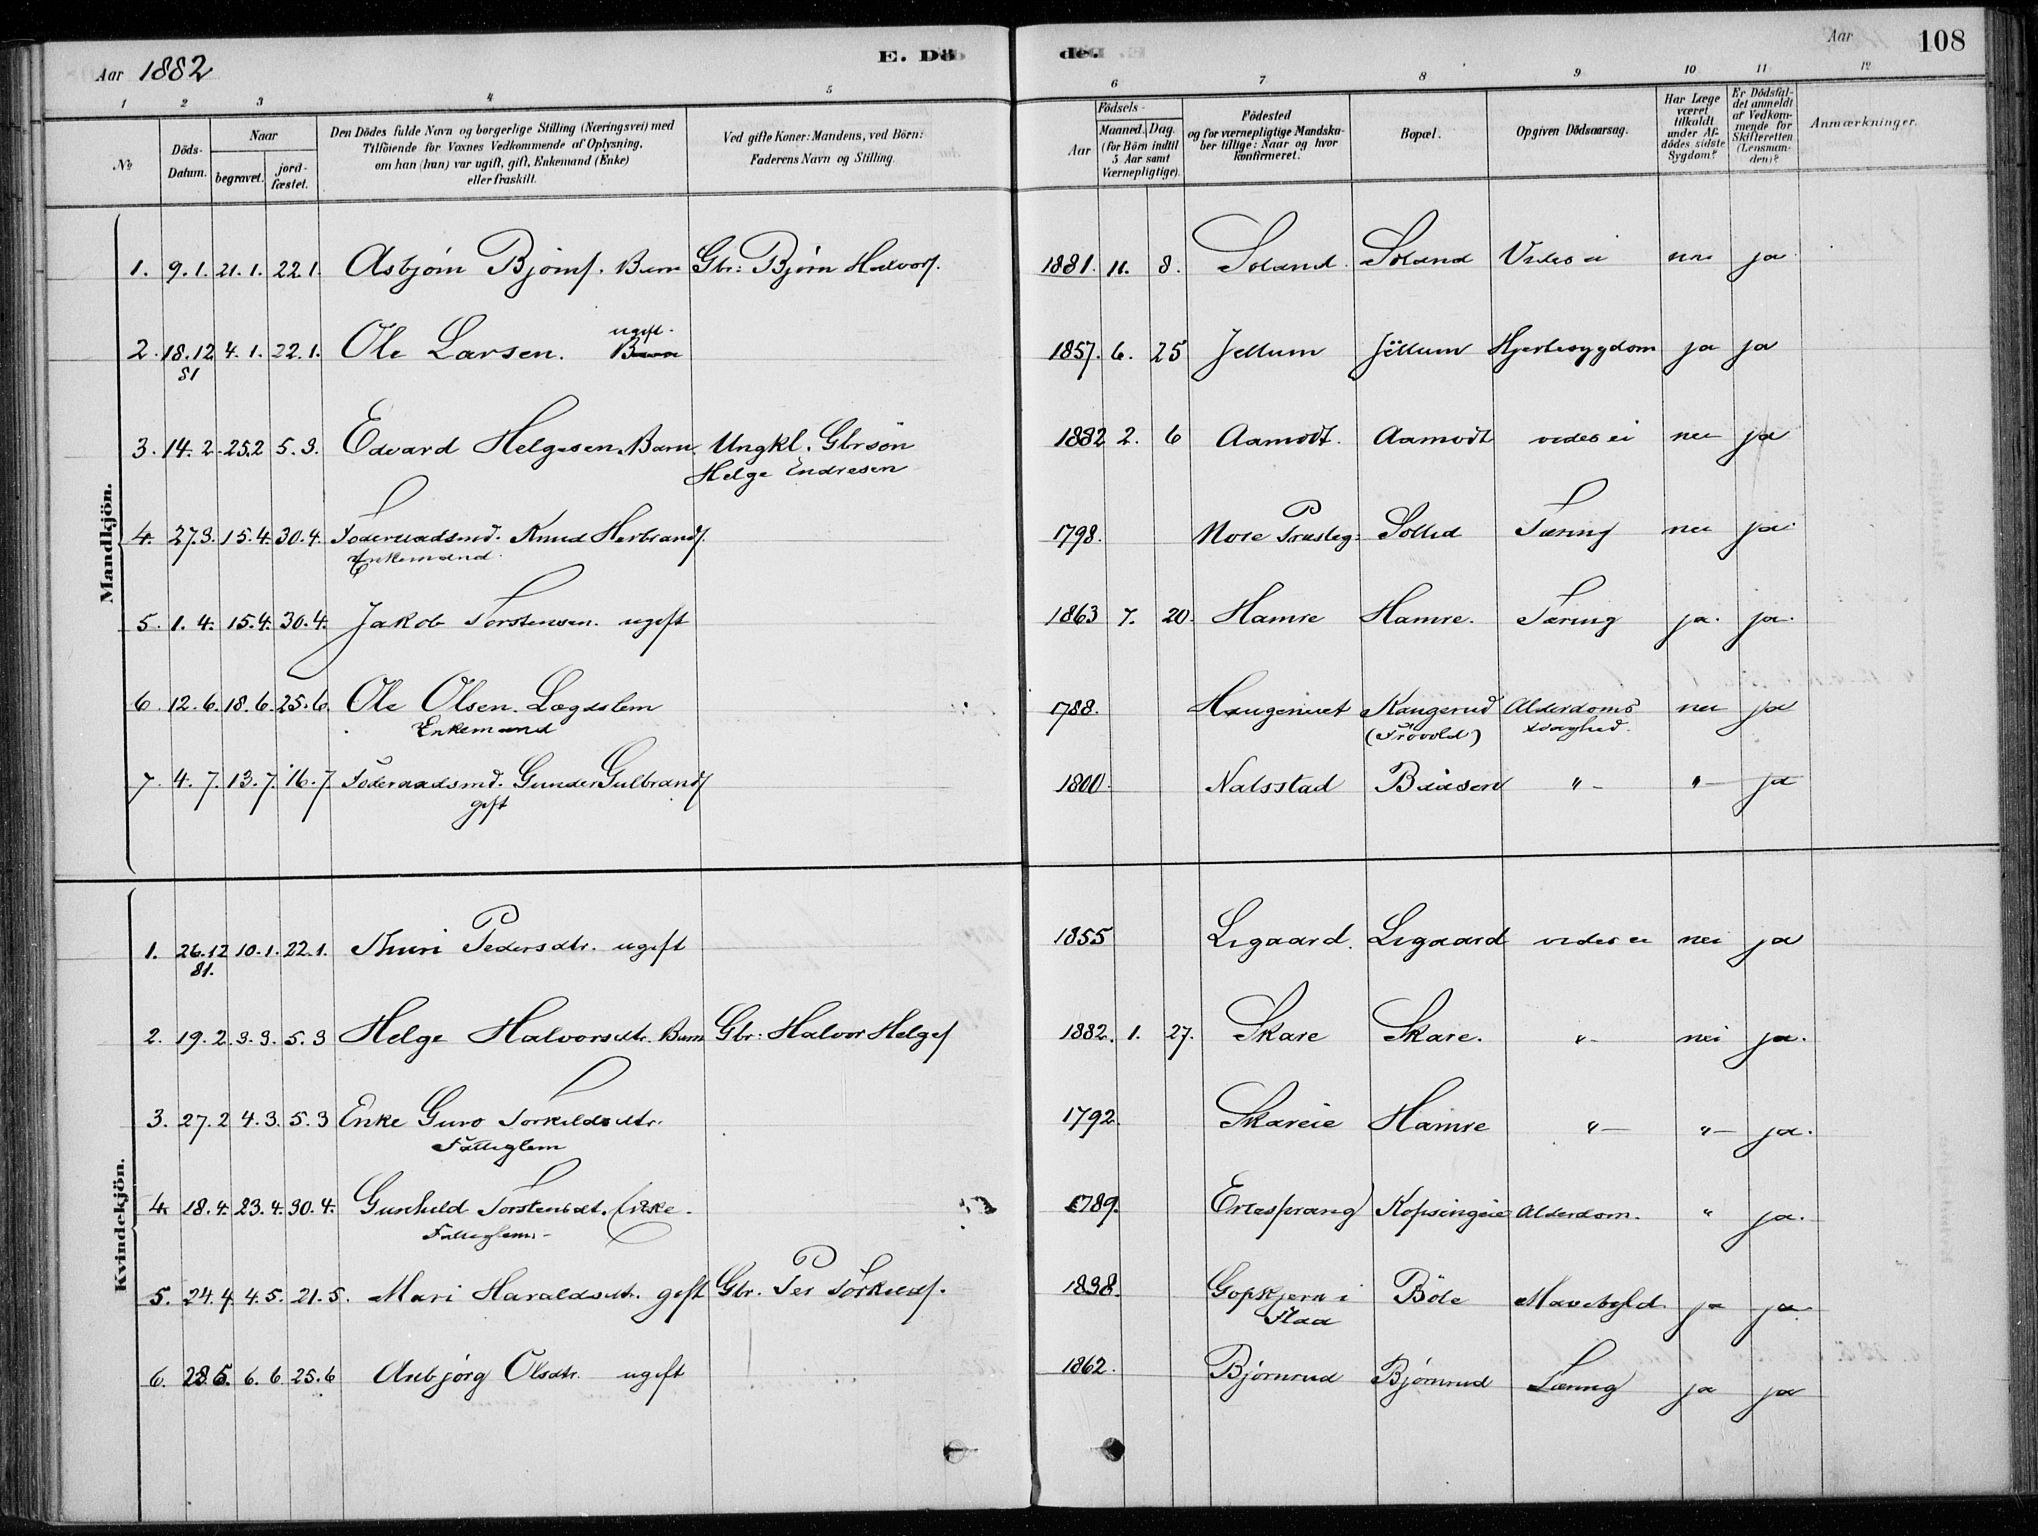 Aar 1882 E. Dö de. Aar 108
1 2 3 4 5 6 7 8 9 10 11 12
No Döds-Datum. Naar begravet. jord-fæstet. Den Dödes fulde Navn og borgerlige Stilling (Næringsvei) med Tilföiende for Voxnes Vedkommende af Oplysning, om han (hun) var ugift, gift, Enkemand (Enke) eller fraskilt. Ved gifte Koner: Mandens, ved Börn: Faderens Navn og Stilling. Födsels- Aar Maaned. Dag. (for Börn indtil 5 Aar samt Værnepligtige). Födested og for værnepligtige Mandskaber tillige: Naar og hvor konfirmeret. Bopæl. Opgiven Dödsaarsag. Har Læge været tilkaldt under Afdödes sidste Sygdom? Er Dödsfaldet anmeldt af Vedkommende for Skifteretten (Lensmanden)? Anmærkninger.
Mandkjön.
1. 9.1. 21.1. 22.1. Asbjørn Bjørns. Barn Gbr: Bjørn Halvors. 1881. 11. 8. Soland. Soland Vides ei nei ja
2. 18.12 81 4.1. 22.1. Ole Larsen. ugift. Barn 1857. 6. 25 Jellum Jellum Hjertesygdom ja ja
3. 14.2. 25.2 5.3. Edvard Helgesen. Barn. Ungkl. Gbrsön 1882 2. 6 Aamodt. Aamodt vides ei nei ja
Helge Endresen
4. 27.3. 15.4. 30.4. Föderaadsmd. Knud Herbrands. 1798. Nore Præsteg: Sollid Tæring nei ja.
Enkemand.
5. 1.4. 15.4. 30.4. Jakob Torstensen. ugift 1863 7. 20. Hamre Hamre. Tæring ja. ja.
6. 12.6. 18.6. 25.6. Ole Olsen. Lægdslem 1788. Haugeruet Kaugerud Alderdoms nei ja
Enkemand svaghed.
7. 4.7. 13.7. 16.7. Föderaadsmd. Gunder Gulbrands 1800. Nalsstad " - " - ja
gift
Kvindekjön.
1. 26.12 81. 10.1. 22.1. Thuri Pedersdtr. ugift 1855 Ligaard. Ligaard vides ei nei ja
2. 19.2. 3.3. 5.3 Helge Halvorsdtr. Barn Gbr: Halvor Helges 1882. 1. 27. Skare Skare. " - nei ja.
3. 27.2 4.3. 5.3 Enke Guro Torkildsdtr. 1792. Skareie Hamre " - " - ja.
Fattiglem
4. 18.4. 23.4. 30.4. Gunhild Torstensdt. Enke. 1789. Kopsingeie Alderdom. " ja.
Fattiglem -
5. 24.4. 4.5. 21.5. Mari Haraldsdtr. gift Gbr. Per Torkilds. 1838. Gopkjern i Böle Mavebyld. ja ja.
Flaa
6. 28.5. 6.6. 25.6 Anbjörg Olsdtr. ugift 1862. Bjørnrud Bjørnrud Tæring ja ja